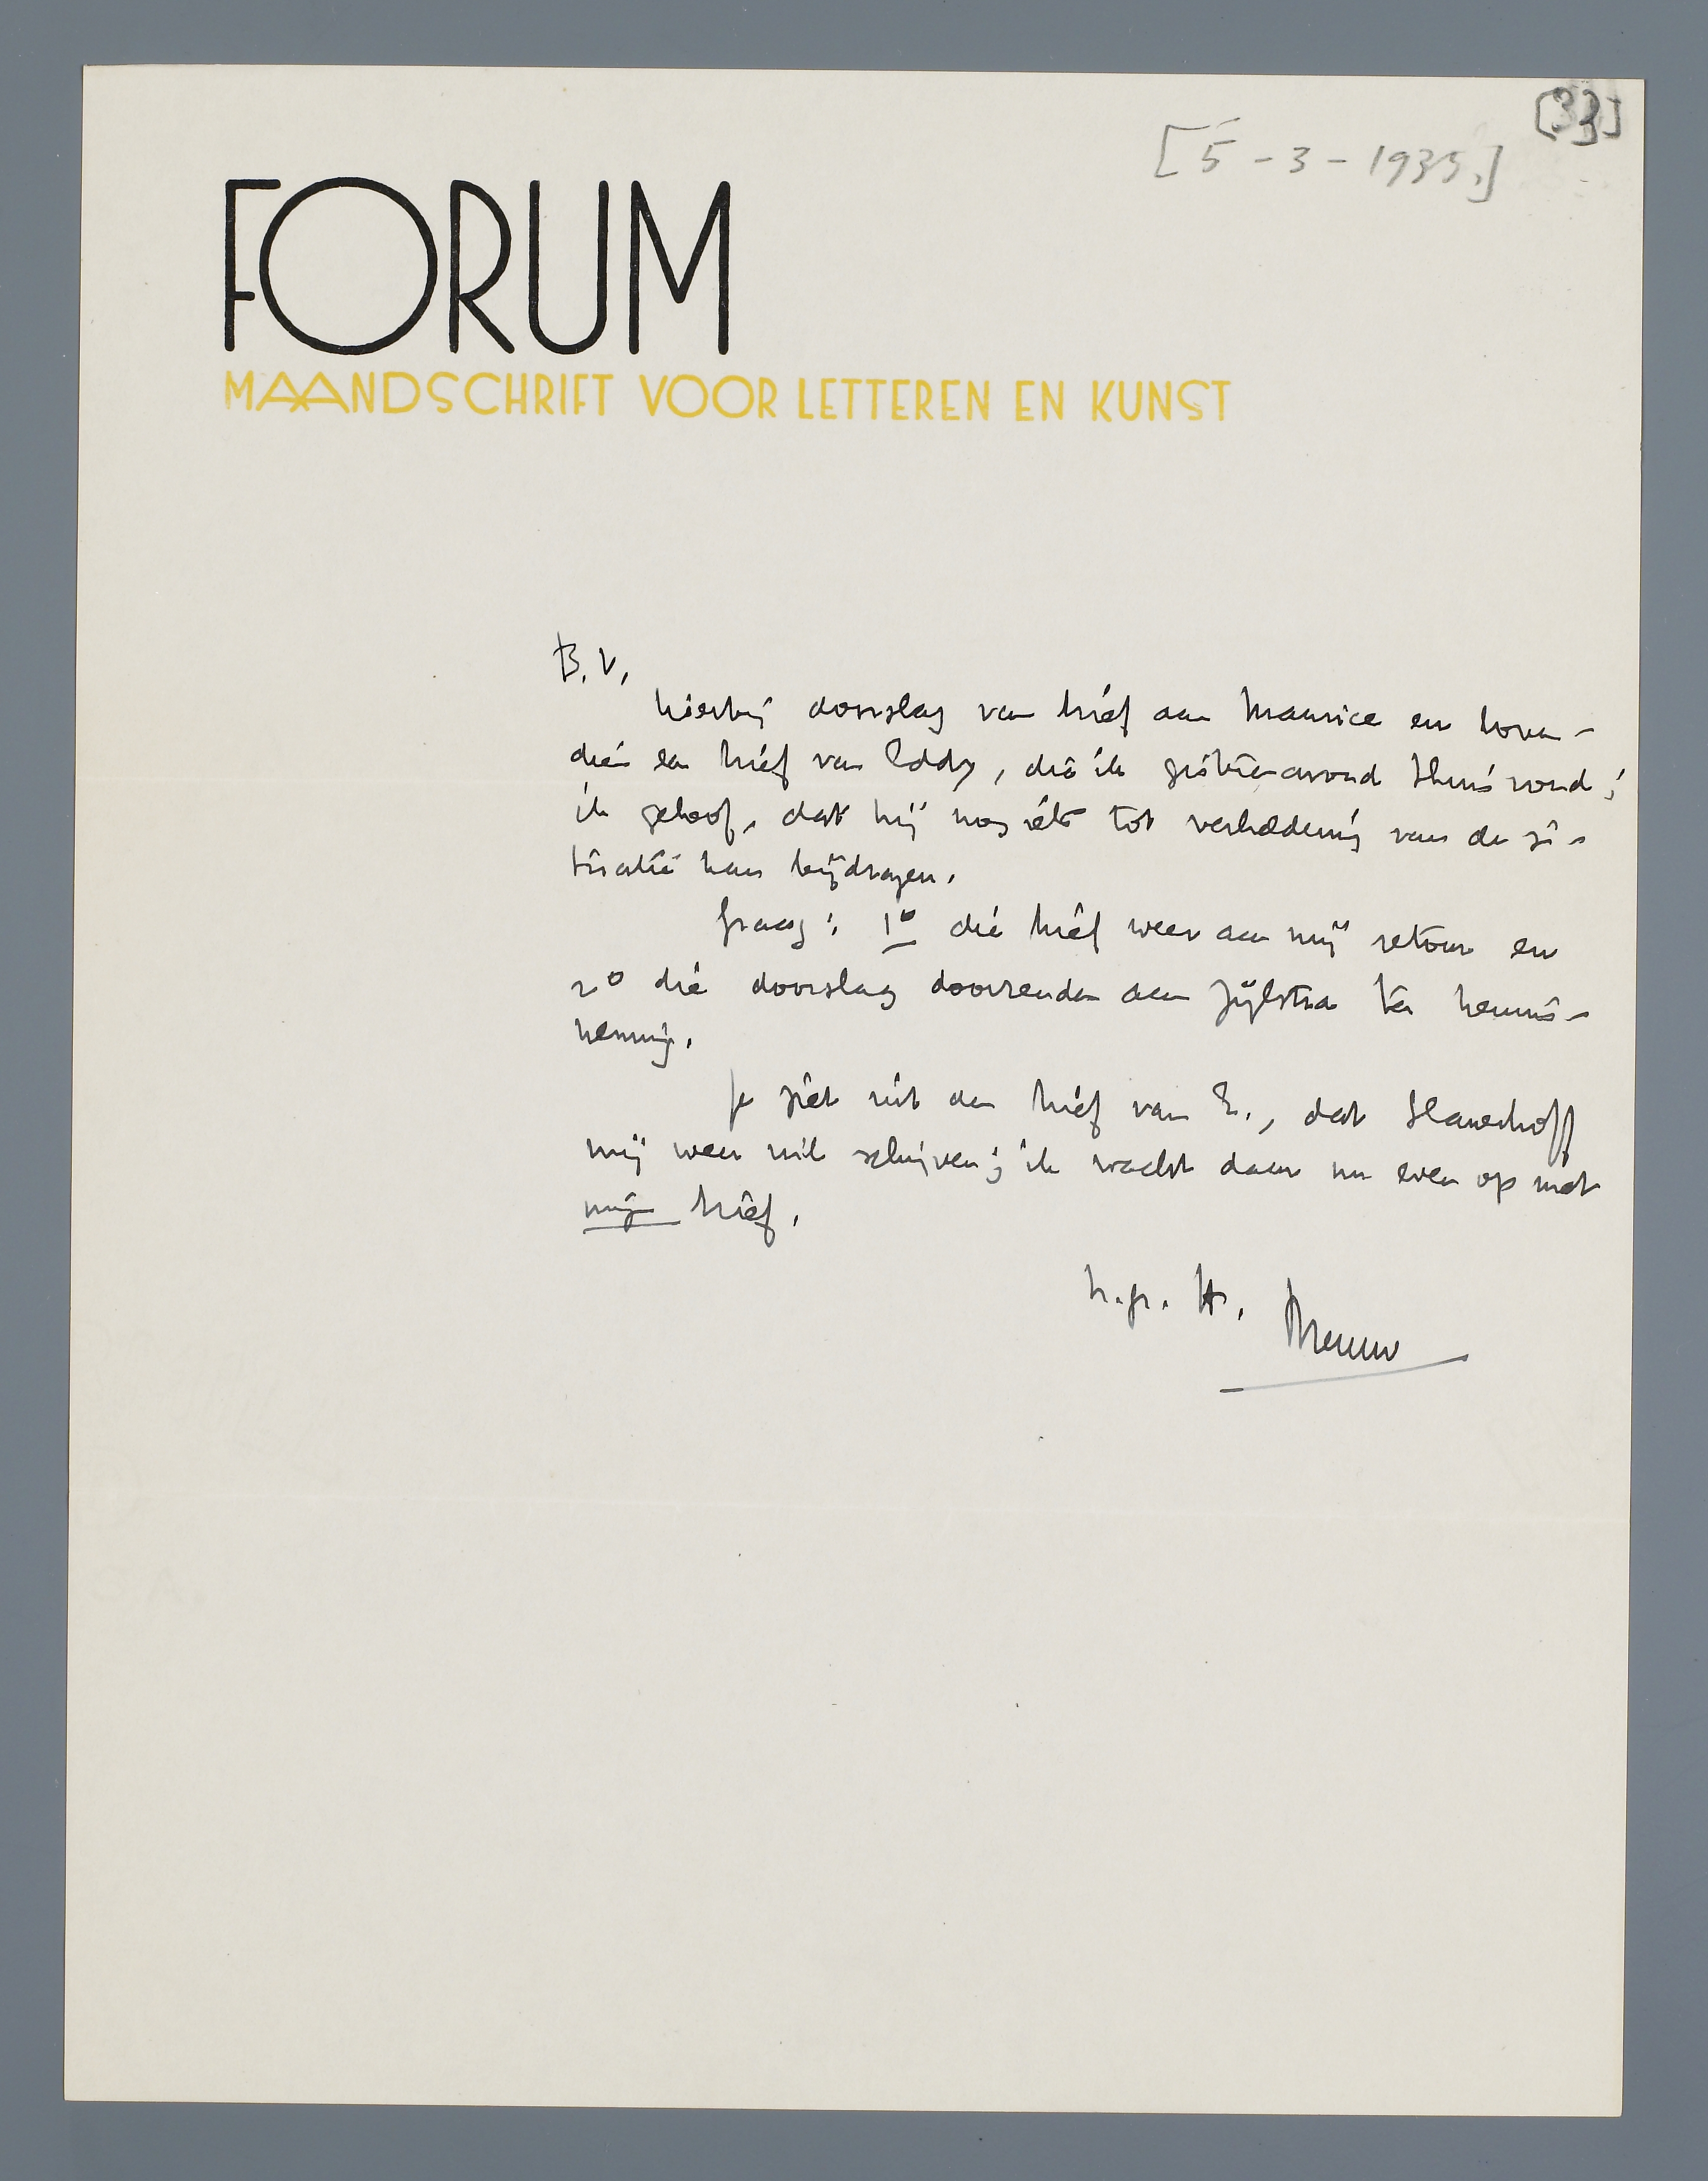 [33]
[5-3-1935.]
FORUM
MAANDSCHRIFT VOOR LETTEREN EN KUNST
B.V.
hierbij doorslag van brief aan Maurice en boven-
dien een brief van Eddy, die ik gisterenavond thuis vond;
ik geloof, dat hij nog iets tot verheldering van de si-
tuatie kan bijdragen.
Graag: 1o die brief weer aan mij retour en
2o die doorslag doorzenden aan Zijlstra ter kennis-
neming.
Je ziet uit den brief van E., dat Slauerhoff
mij weer wil schrijven; ik wacht daar nu even op met
mijn brief.
h.gr. tt.
Menno